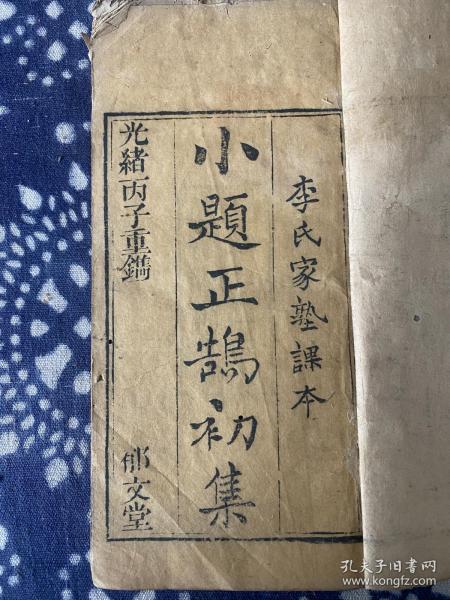 李氏家塾課本
小題正鵠初集
光緒丙子重鐫
郁文堂
孔夫子旧书网
www.kongfz.com